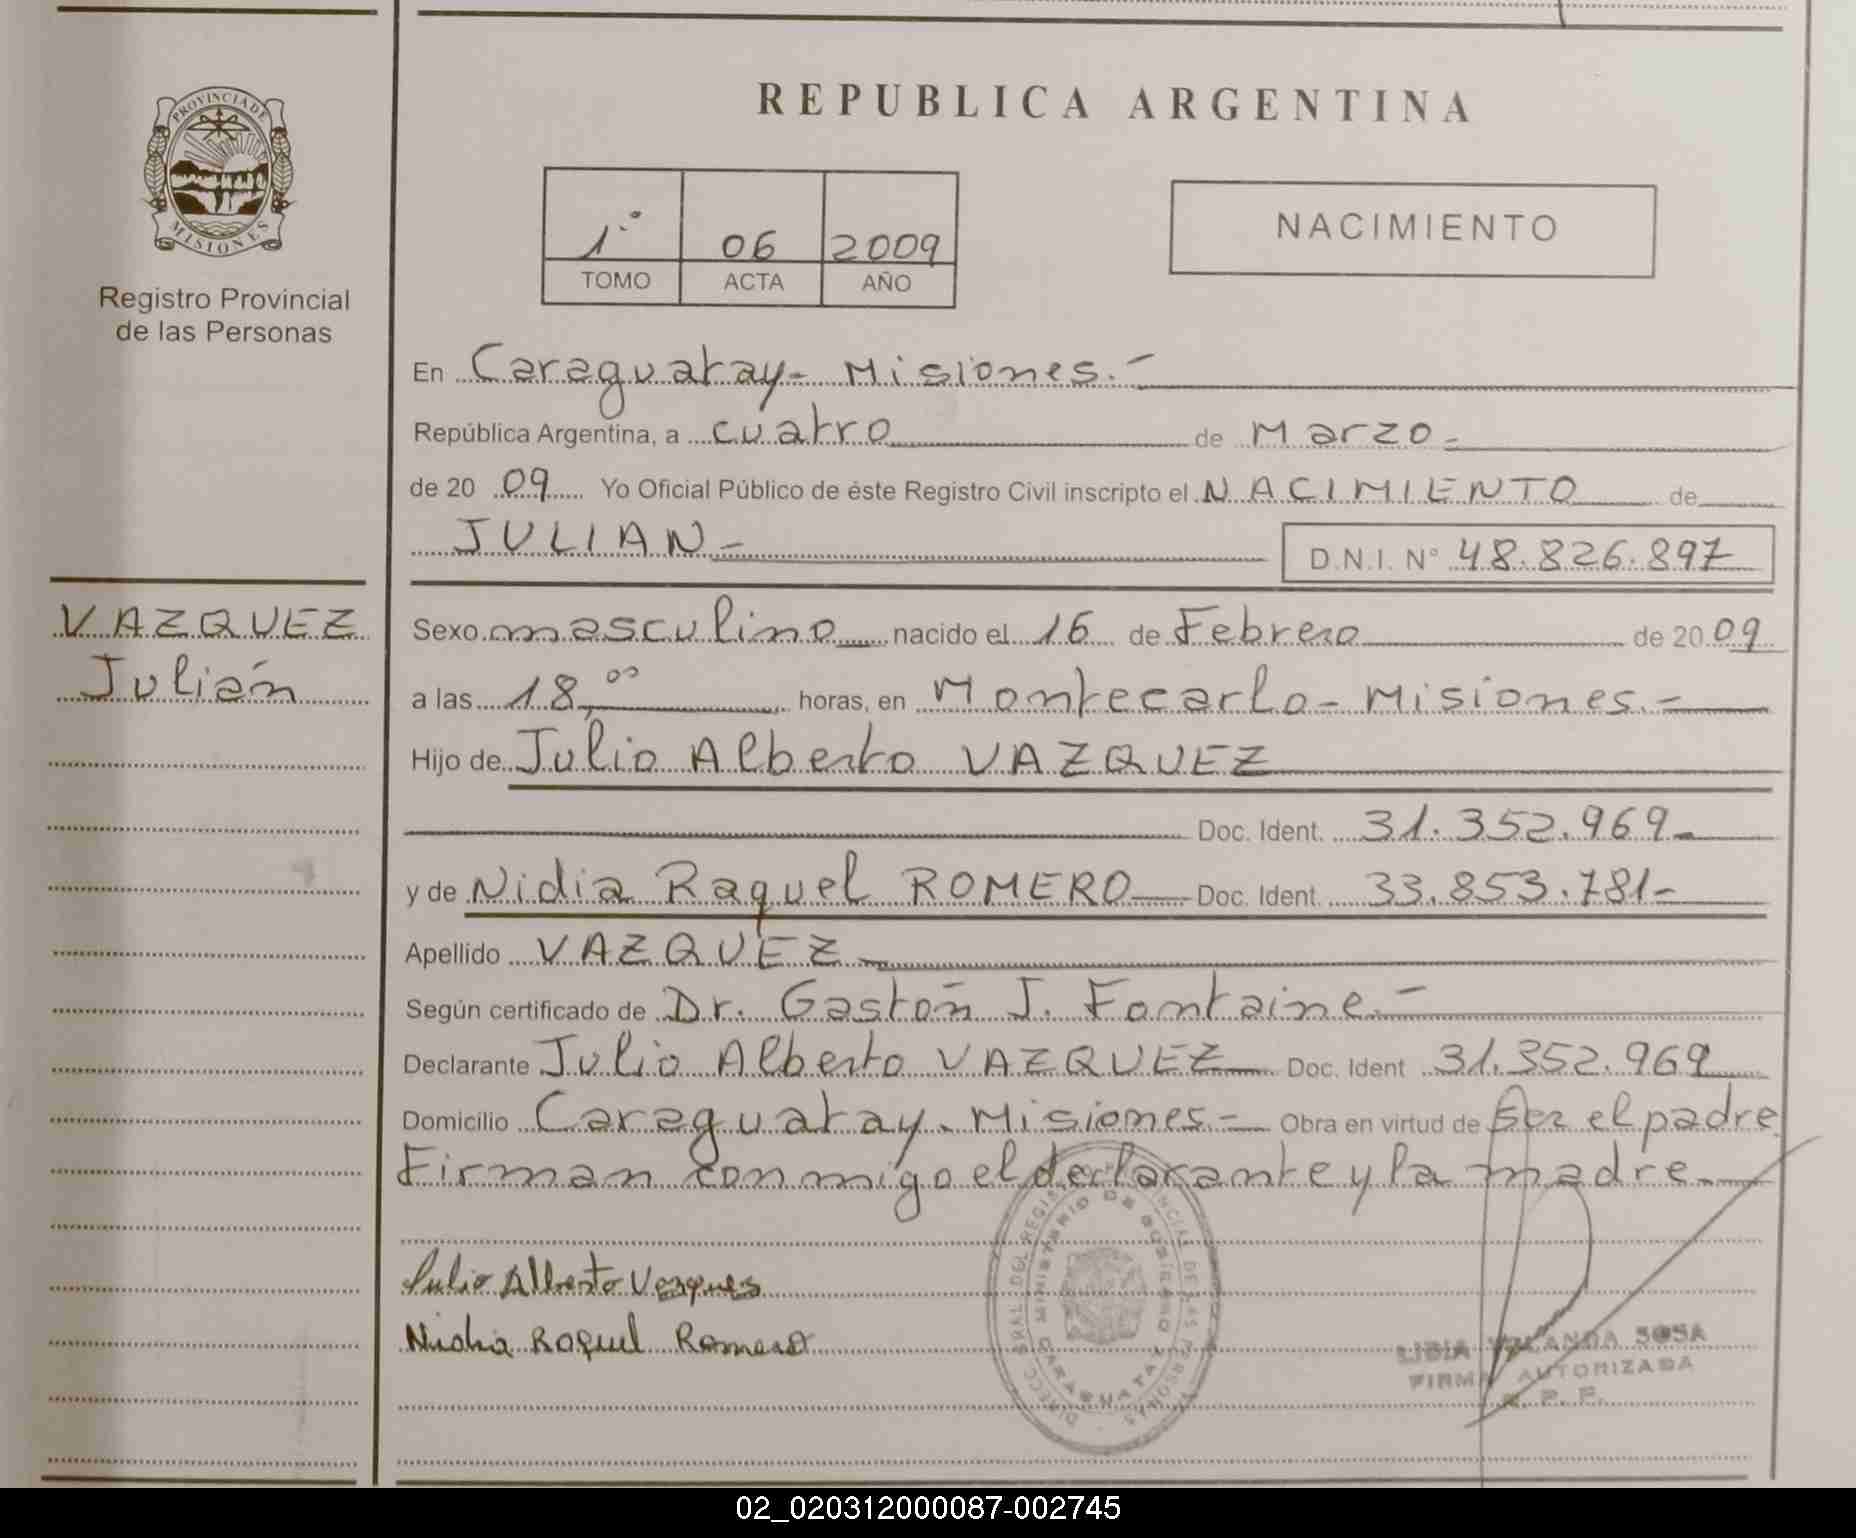 REPUBLICA ARGENTINA
PROVINCIA DE
MISIONES
Registro Provincial
de las Personas
1° 06 2009
TOMO ACTA AÑO
NACIMIENTO
En Caraguatay - Misiones.-
República Argentina, a cuatro de Marzo-
de 20 09 Yo Oficial Público de éste Registro Civil inscripto el NACIMIENTO de
JULIAN- D.N.I. N° 48.826.897
VAZQUEZ
Julián
Sexo masculino nacido el 16 de Febrero de 20 09
a las 18,00 horas, en Montecarlo - Misiones.-
Hijo de Julio Alberto VAZQUEZ
Doc. Ident. 31.352.969-
y de Nidia Raquel ROMERO Doc. Ident. 33.853.781-
Apellido VAZQUEZ-
Según certificado de Dr. Gastón J. Fontaine.-
Declarante Julio Alberto VAZQUEZ Doc. Ident 31.352.969
Domicilio Caraguatay - Misiones.- Obra en virtud de Ser el padre
Firman conmigo el declarante y la madre.-
Julio Alberto Vazques
Nidia Raquel Romero
MINISTERIO DE GOBIERNO
CARAGUATAY
LIBIA YOLANDA SOSA
FIRMA AUTORIZADA
R. P. P.
02_020312000087-002745